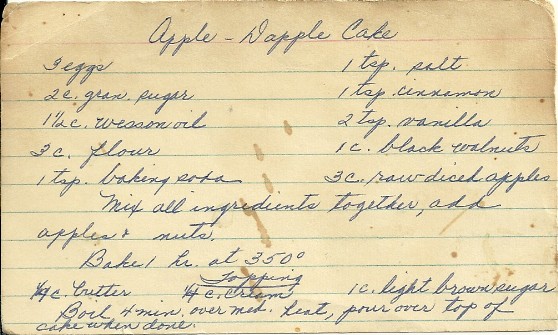 Apple - Dapple Cake
3 eggs 1 tsp. salt
2 c. gran. sugar 1 tsp. cinnamon
1 1/2 c. wesson oil 2 tsp. vanilla
3 c. flour 1 c. black walnuts
1 tsp. baking soda 3 c. raw diced apples
Mix all ingredients together, add
apples & nuts.
Bake 1 hr. at 350°
Topping
1/4 c. butter 1/4 c. cream 1 c. light brown sugar
Boil 4 min. over med. heat, pour over top of
cake when done.